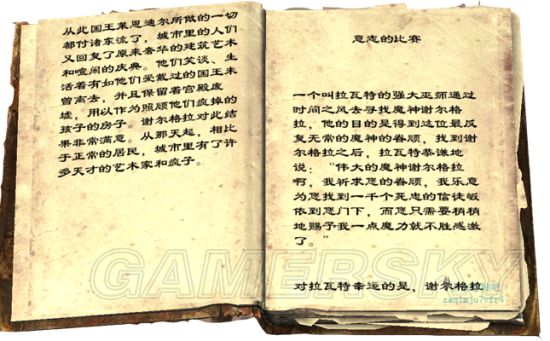 从此国王莱恩迪尔所做的一切
都付诸东流了，城市里的人们
又回复了原来奢华的建筑艺术
和喧闹的庆典。他们笑谈、生
活着有如他们爱戴过的国王未
曾离去，并且保留着宫殿废
墟，用以作为照顾他们疯掉的
孩子的房子。谢尔格拉对此结
果非常满意。从那天起，相比
于正常的居民，城市里有了许
多天才的艺术家和疯子。
意志的比赛
一个叫拉瓦特的强大巫师通过
时间之风去寻找魔神谢尔格
拉，他的目的是得到这位最反
复无常的魔神的眷顾，找到谢
尔格拉之后，拉瓦特恭谦地
说：“伟大的魔神谢尔格拉
啊，我祈求您的眷顾，我乐意
为您找到一千个死忠的信徒皈
依到您门下，而您只需要稍稍
地赐予我一点魔力就不胜感激
了。”
对拉瓦特幸运的是，谢尔格拉
GAMERSKY
zaqimju7vfr4